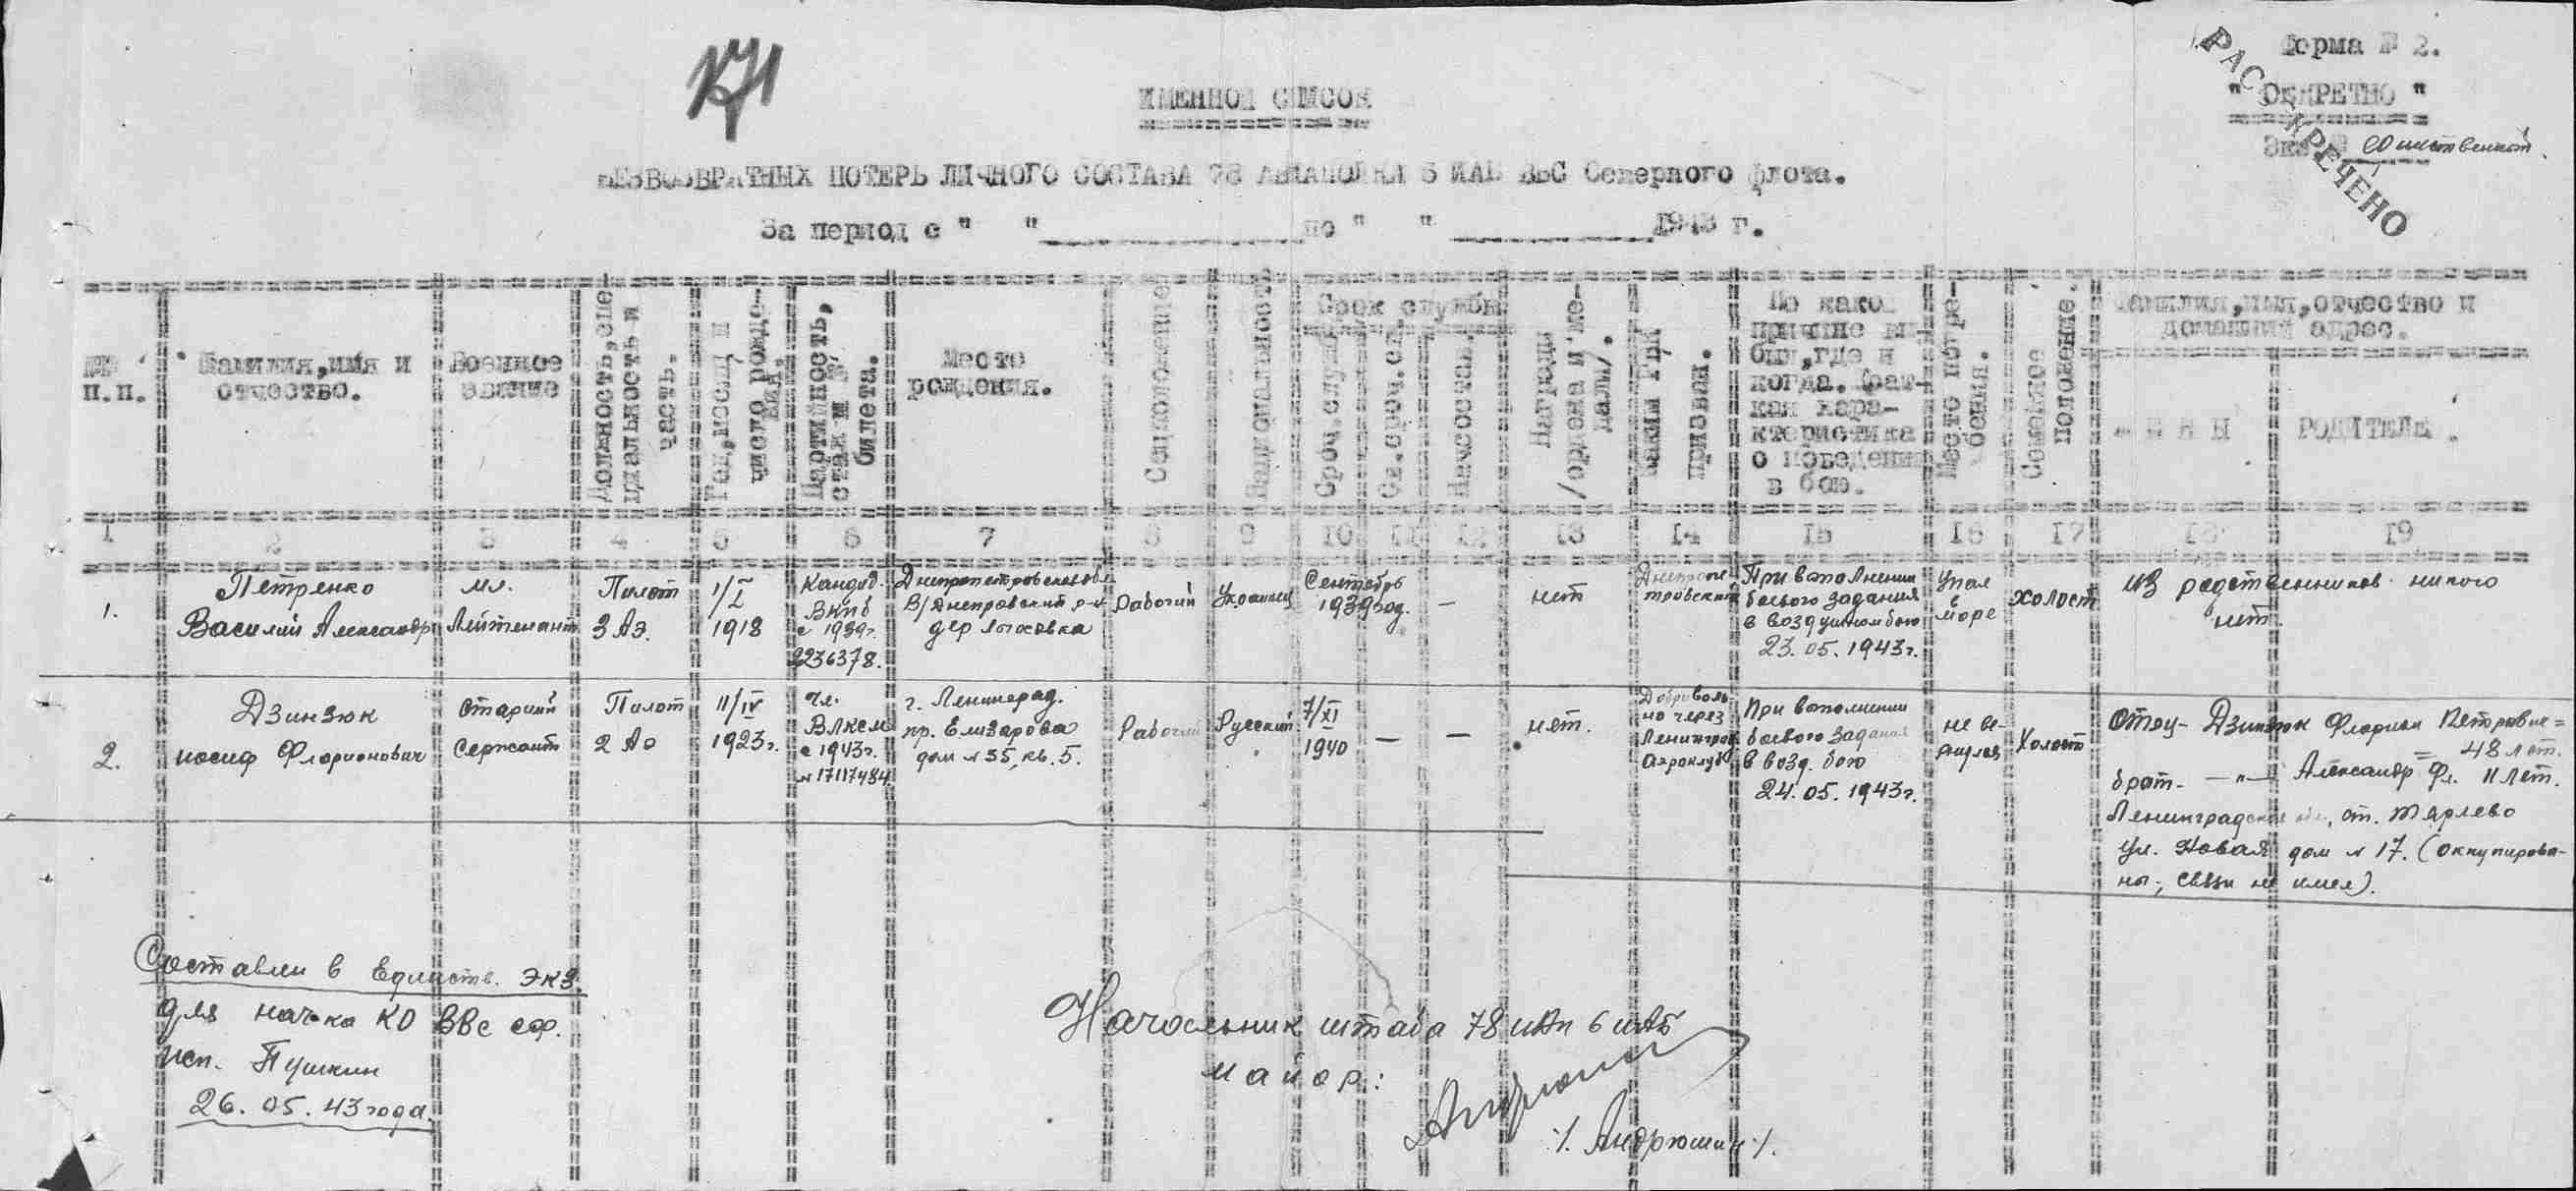 Форма № 2.
" СЕКРЕТНО "
Экз. № единственный.
РАССЕКРЕЧЕНО
ИМЕННОЙ СПИСОК
БЕЗВОЗВРАТНЫХ ПОТЕРЬ ЛИЧНОГО СОСТАВА 78 АВИАПОЛКА 6 ИАБ ВВС Северного флота.
За период с " " по " " 1943 г.
№№ п.п.
Фамилия, имя и отчество.
Военное звание
Должность, специальность и часть.
Год, месяц и число рождения.
Партийность, стаж и № билета.
Место рождения.
Соцположение
Национальность
Срок службы
Сроч. служ
Св. сроч. сл.
Начсостав.
Награды /ордена и медали/.
Каким РВК призван.
По какой причине выбыл, где и когда. Краткая характеристика о поведении в бою.
Место погребения.
Семейное положение.
Фамилия, имя, отчество и домашний адрес.
ЖЕНЫ
РОДИТЕЛЕЙ.
1 2 3 4 5 6 7 8 9 10 11 12 13 14 15 16 17 18 19
1.
Петренко
Василий Александр
мл.
Лейтенант
Пилот
3 АЭ.
1/I
1918
Кандид.
ВКПб
с 1939г.
2236378.
Днепропетровская обл
В/Днепровский р-н
дер Лысковка
Рабочий
Украинец
Сентябрь
1939 год.
—
нет
Днепропе
тровский
При выполнении
боевого задания
в воздушном бою
23.05.1943г.
Упал
в
море
холост
Из родственников никого
нет.
2.
Дзинзюк
иосиф Флорионович
Старший
Сержант
Пилот
2 Аэ
11/IV
1923г.
Чл.
ВЛКСМ
с 1943г.
№ 17117484.
г. Ленинград.
пр. Елизарова
дом № 35, кв. 5.
Рабочий
Русский
7/XI
1940
—
—
нет.
Доброволь-
но через
Ленинград
Аэроклуб
При выполнении
боевого задания
в возд. бою
24.05.1943г.
не ве-
рнулся
Холост
Отец - Дзинзюк Флориан Петрович =
= 48 лет.
брат. —"— Александр Фл. 11 лет.
Ленинградская обл., ст. Тярлево
ул. Новая дом № 17. (оккупирова-
ны, связи не имел).
Составлен в Единств. Экз.
для нач-ка КО ВВС СФ.
Исп. Пушкин
26.05.43 года.
Начальник штаба 78 иАп 6 иАб
майор:
/. Андрюшин ./.